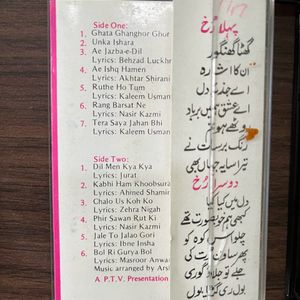 Side One:
1. Ghata Ghanghor Ghor
2. Unka Ishara
3. Ae Jazba-e-Dil
Lyrics: Behzad Luckhn
4. Ae Ishq Hamen
Lyrics: Akhtar Shirani
5. Ruthe Ho Tum
Lyrics: Kaleem Usman
6. Rang Barsat Ne
Lyrics: Nasir Kazmi
7. Tera Saya Jahan Bhi
Lyrics: Kaleem Usman
Side Two:
1. Dil Men Kya Kya
Lyrics: Jurat
2. Kabhi Ham Khoobsura
Lyrics: Ahmed Shamim
3. Chalo Us Koh Ko
Lyrics: Zehra Nigah
4. Phir Sawan Rut Ki
Lyrics: Nasir Kazmi
5. Jale To Jalao Gori
Lyrics: Ibne Insha
6. Bol Ri Gurya Bol
Lyrics: Masroor Anwar
Music arranged by Ars
A P.T.V. Presentation
پہلا رُخ
گھٹا گھنگور
ان کا اشارہ
اے جذبہ دل
اے عشق ہمیں برباد
روٹھے ہو تم
رنگ برسات نے
تیرا سایہ جہاں بھی
دوسرا رُخ
دل میں کیا کیا
کبھی ہم خوبصورت تھے
چلو اس کوہ کو
پھر ساون رت کی
جلے تو جلاؤ گوری
بول ری گڑیا بول